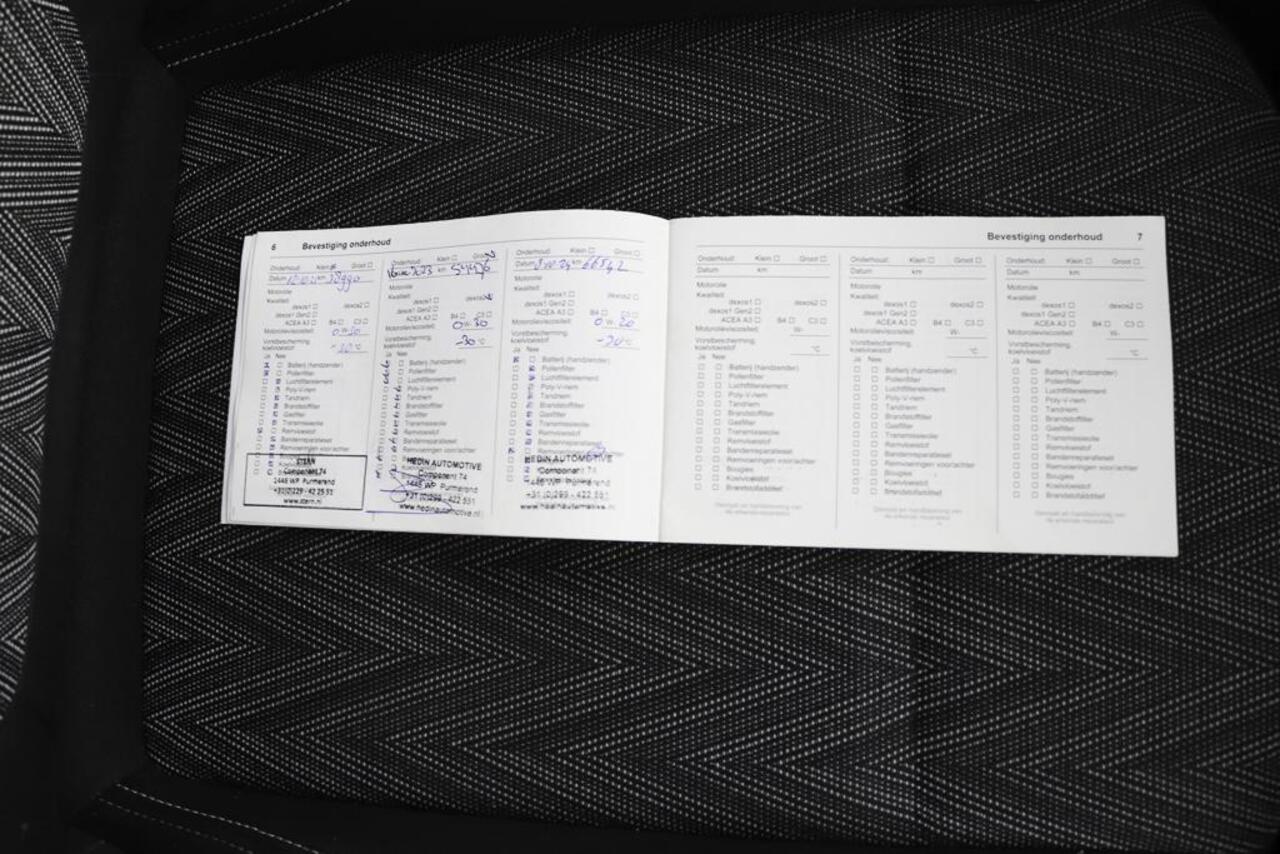 6 Bevestiging onderhoud
Onderhoud: Klein Groot
Datum km 38990
Motorolie
Kwaliteit:
dexos1 dexos2
dexos1 Gen2
ACEA A3 B4 C3
Motorolieviscositeit: 0 W-
Vorstbescherming,
koelvloeistof °C
Ja Nee
Batterij (handzender)
Pollenfilter
Luchtfilterelement
Poly-V-riem
Tandriem
Brandstoffilter
Gasfilter
Transmissieolie
Remvloeistof
Bandenreparatieset
Remvoeringen voor/achter
STERN
Component 74
1446 WP Purmerend
+31(0)299 - 42 25 51
www.stern.nl
Onderhoud: Klein Groot
2023 km 54476
Motorolie
Kwaliteit:
dexos1 dexos2
dexos1 Gen2
ACEA A3 B4 C3
Motorolieviscositeit: 0 W- 30
Vorstbescherming,
koelvloeistof -30 °C
Ja Nee
Batterij (handzender)
Pollenfilter
Luchtfilterelement
Poly-V-riem
Tandriem
Brandstoffilter
Gasfilter
Transmissieolie
Remvloeistof
Bandenreparatieset
Remvoeringen voor/achter
HEDIN AUTOMOTIVE
Component 74
1446 WP Purmerend
+31 (0)299 - 422 551
www.hedinautomotive.nl
Onderhoud: Klein Groot
Datum km 66542
Motorolie
Kwaliteit:
dexos1 dexos2
dexos1 Gen2
ACEA A3 B4 C3
Motorolieviscositeit: 0 W- 20
Vorstbescherming,
koelvloeistof °C
Ja Nee
Batterij (handzender)
Pollenfilter
Luchtfilterelement
Poly-V-riem
Tandriem
Brandstoffilter
Gasfilter
Transmissieolie
Remvloeistof
Bandenreparatieset
HEDIN AUTOMOTIVE
Component 74
1446 WP Purmerend
+31 (0)299 - 422 551
www.hedinautomotive.nl
Bevestiging onderhoud 7
Onderhoud: Klein Groot
Datum km
Motorolie
Kwaliteit:
dexos1 dexos2
dexos1 Gen2
ACEA A3 B4 C3
Motorolieviscositeit: W-
Vorstbescherming,
koelvloeistof °C
Ja Nee
Batterij (handzender)
Pollenfilter
Luchtfilterelement
Poly-V-riem
Tandriem
Brandstoffilter
Gasfilter
Transmissieolie
Remvloeistof
Bandenreparatieset
Remvoeringen voor/achter
Bougies
Koelvloeistof
Brandstofadditief
Stempel en handtekening van
de erkende reparateur
Onderhoud: Klein Groot
Datum km
Motorolie
Kwaliteit:
dexos1 dexos2
dexos1 Gen2
ACEA A3 B4 C3
Motorolieviscositeit: W-
Vorstbescherming,
koelvloeistof °C
Ja Nee
Batterij (handzender)
Pollenfilter
Luchtfilterelement
Poly-V-riem
Tandriem
Brandstoffilter
Gasfilter
Transmissieolie
Remvloeistof
Bandenreparatieset
Remvoeringen voor/achter
Bougies
Koelvloeistof
Brandstofadditief
Stempel en handtekening van
de erkende reparateur
Onderhoud: Klein Groot
Datum km
Motorolie
Kwaliteit:
dexos1 dexos2
dexos1 Gen2
ACEA A3 B4 C3
Motorolieviscositeit: W-
Vorstbescherming,
koelvloeistof °C
Ja Nee
Batterij (handzender)
Pollenfilter
Luchtfilterelement
Poly-V-riem
Tandriem
Brandstoffilter
Gasfilter
Transmissieolie
Remvloeistof
Bandenreparatieset
Remvoeringen voor/achter
Bougies
Koelvloeistof
Brandstofadditief
Stempel en handtekening van
de erkende reparateur